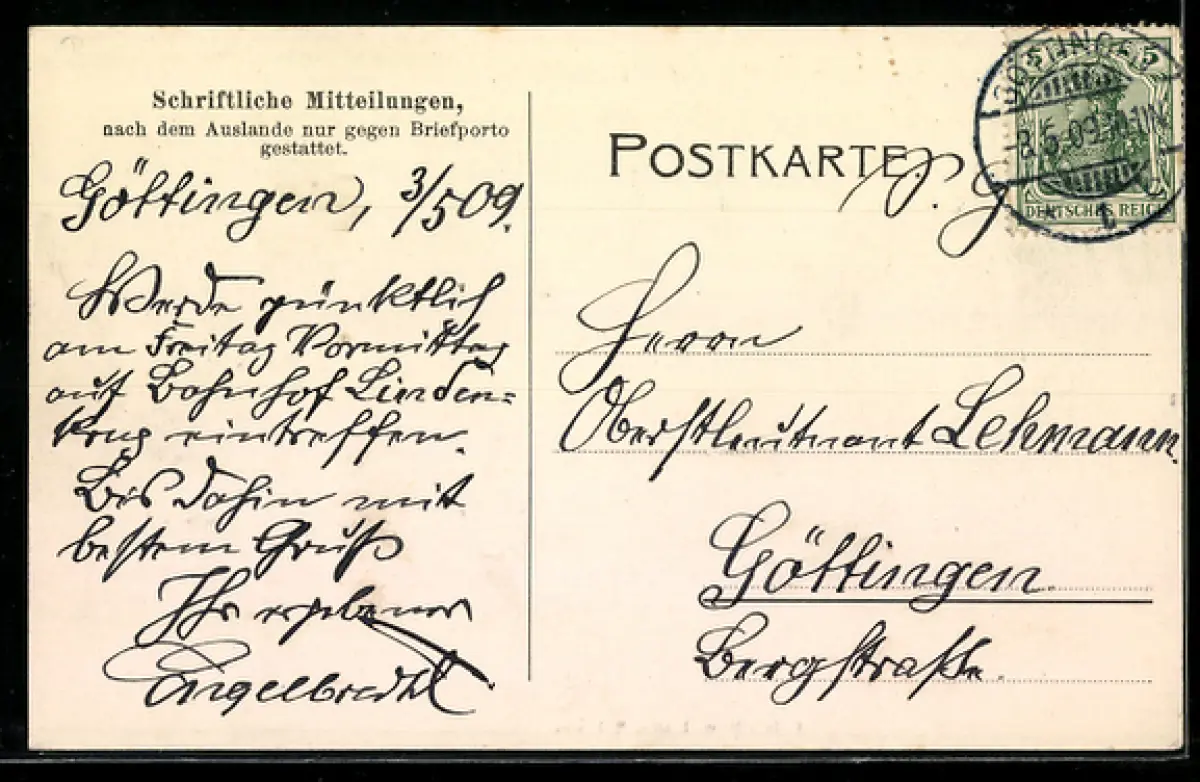 Schriftliche Mitteilungen,
nach dem Auslande nur gegen Briefporto
gestattet.
Göttingen, 3/5 09.
Werde pünktlich
am Freitag Vormittag
auf Bahnhof Linden=
krug eintreffen.
Bis dahin mit
bestem Gruß
Ihr ergebener
Engelbrecht.
POSTKARTE.
DEUTSCHES REICH
5
Herrn
Oberstleutnant Lehmann.
Göttingen.
Bergstraße.